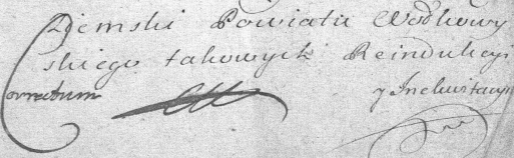 Ziemski Powiatu Wołkowy
skiego takowych Reindukcyi
correctum y Inekwitacyi